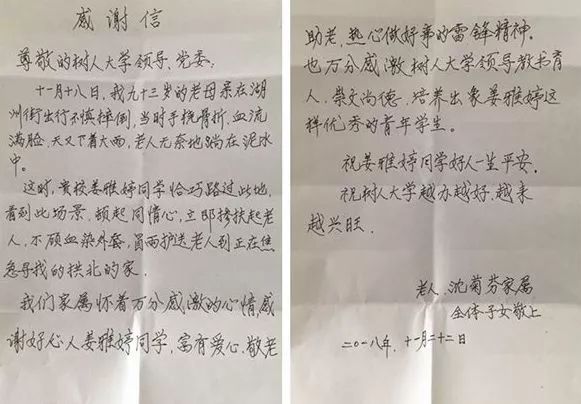 感谢信
尊敬的树人大学领导、党委:
十一月十八日,我九十三岁的老母亲在湖
州街出行不慎摔倒,当时手挽骨折,血流
满脸,天又下着大雨,老人无奈地躺在泥水
中。
这时,贵校姜雅婷同学恰巧路过此地,
看到此场景,顿起同情心,立即搀扶起老
人,不顾血染外套,冒雨护送老人到正在焦
急寻找的拱北的家.
我们家属怀着万分感激的心情感
谢好心人姜雅婷同学,富有爱心、敬老
助老,热心做好事的雷锋精神。
也万分感激树人大学领导教书育
人,崇文尚德,培养出象姜雅婷这
样优秀的青年学生。
祝姜雅婷同学好人一生平安.
祝树人大学越办越好,越来
越兴旺.
老人 沈菊芬家属
全体子女敬上
二〇一八年.十一月二十二日